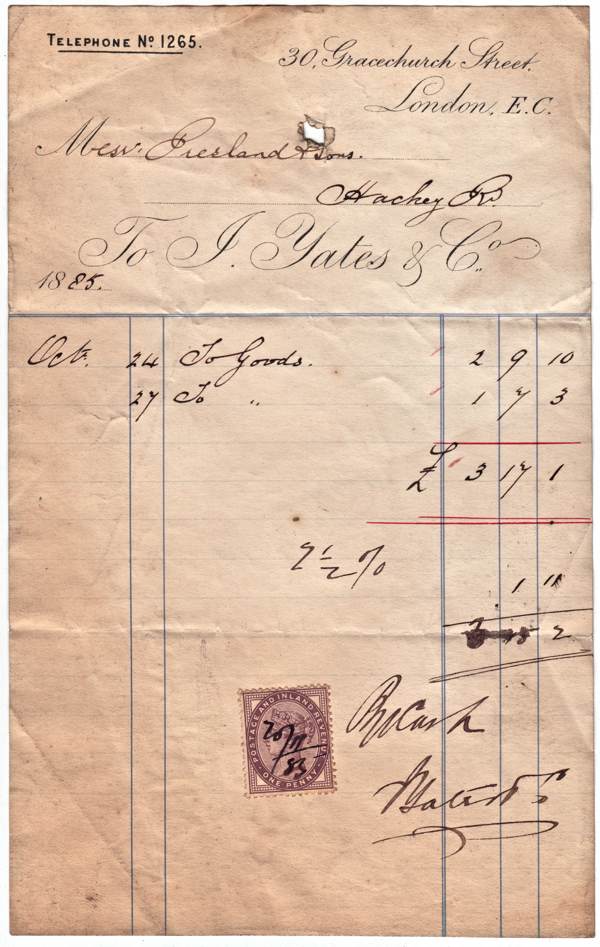 TELEPHONE Nº 1265.
30, Gracechurch Street,
London, E.C.
Messrs. Presland & Sons.
Hackney Rd.
To J. Yates & Co.
1885.
Oct. 24 To Goods. 2 9 10
27 To " 1 7 3
£ 3 17 1
2½ %
1 11
3 15 2
POSTAGE AND INLAND REVENUE
ONE PENNY
20/11
85
By Cash
J Yates & Co